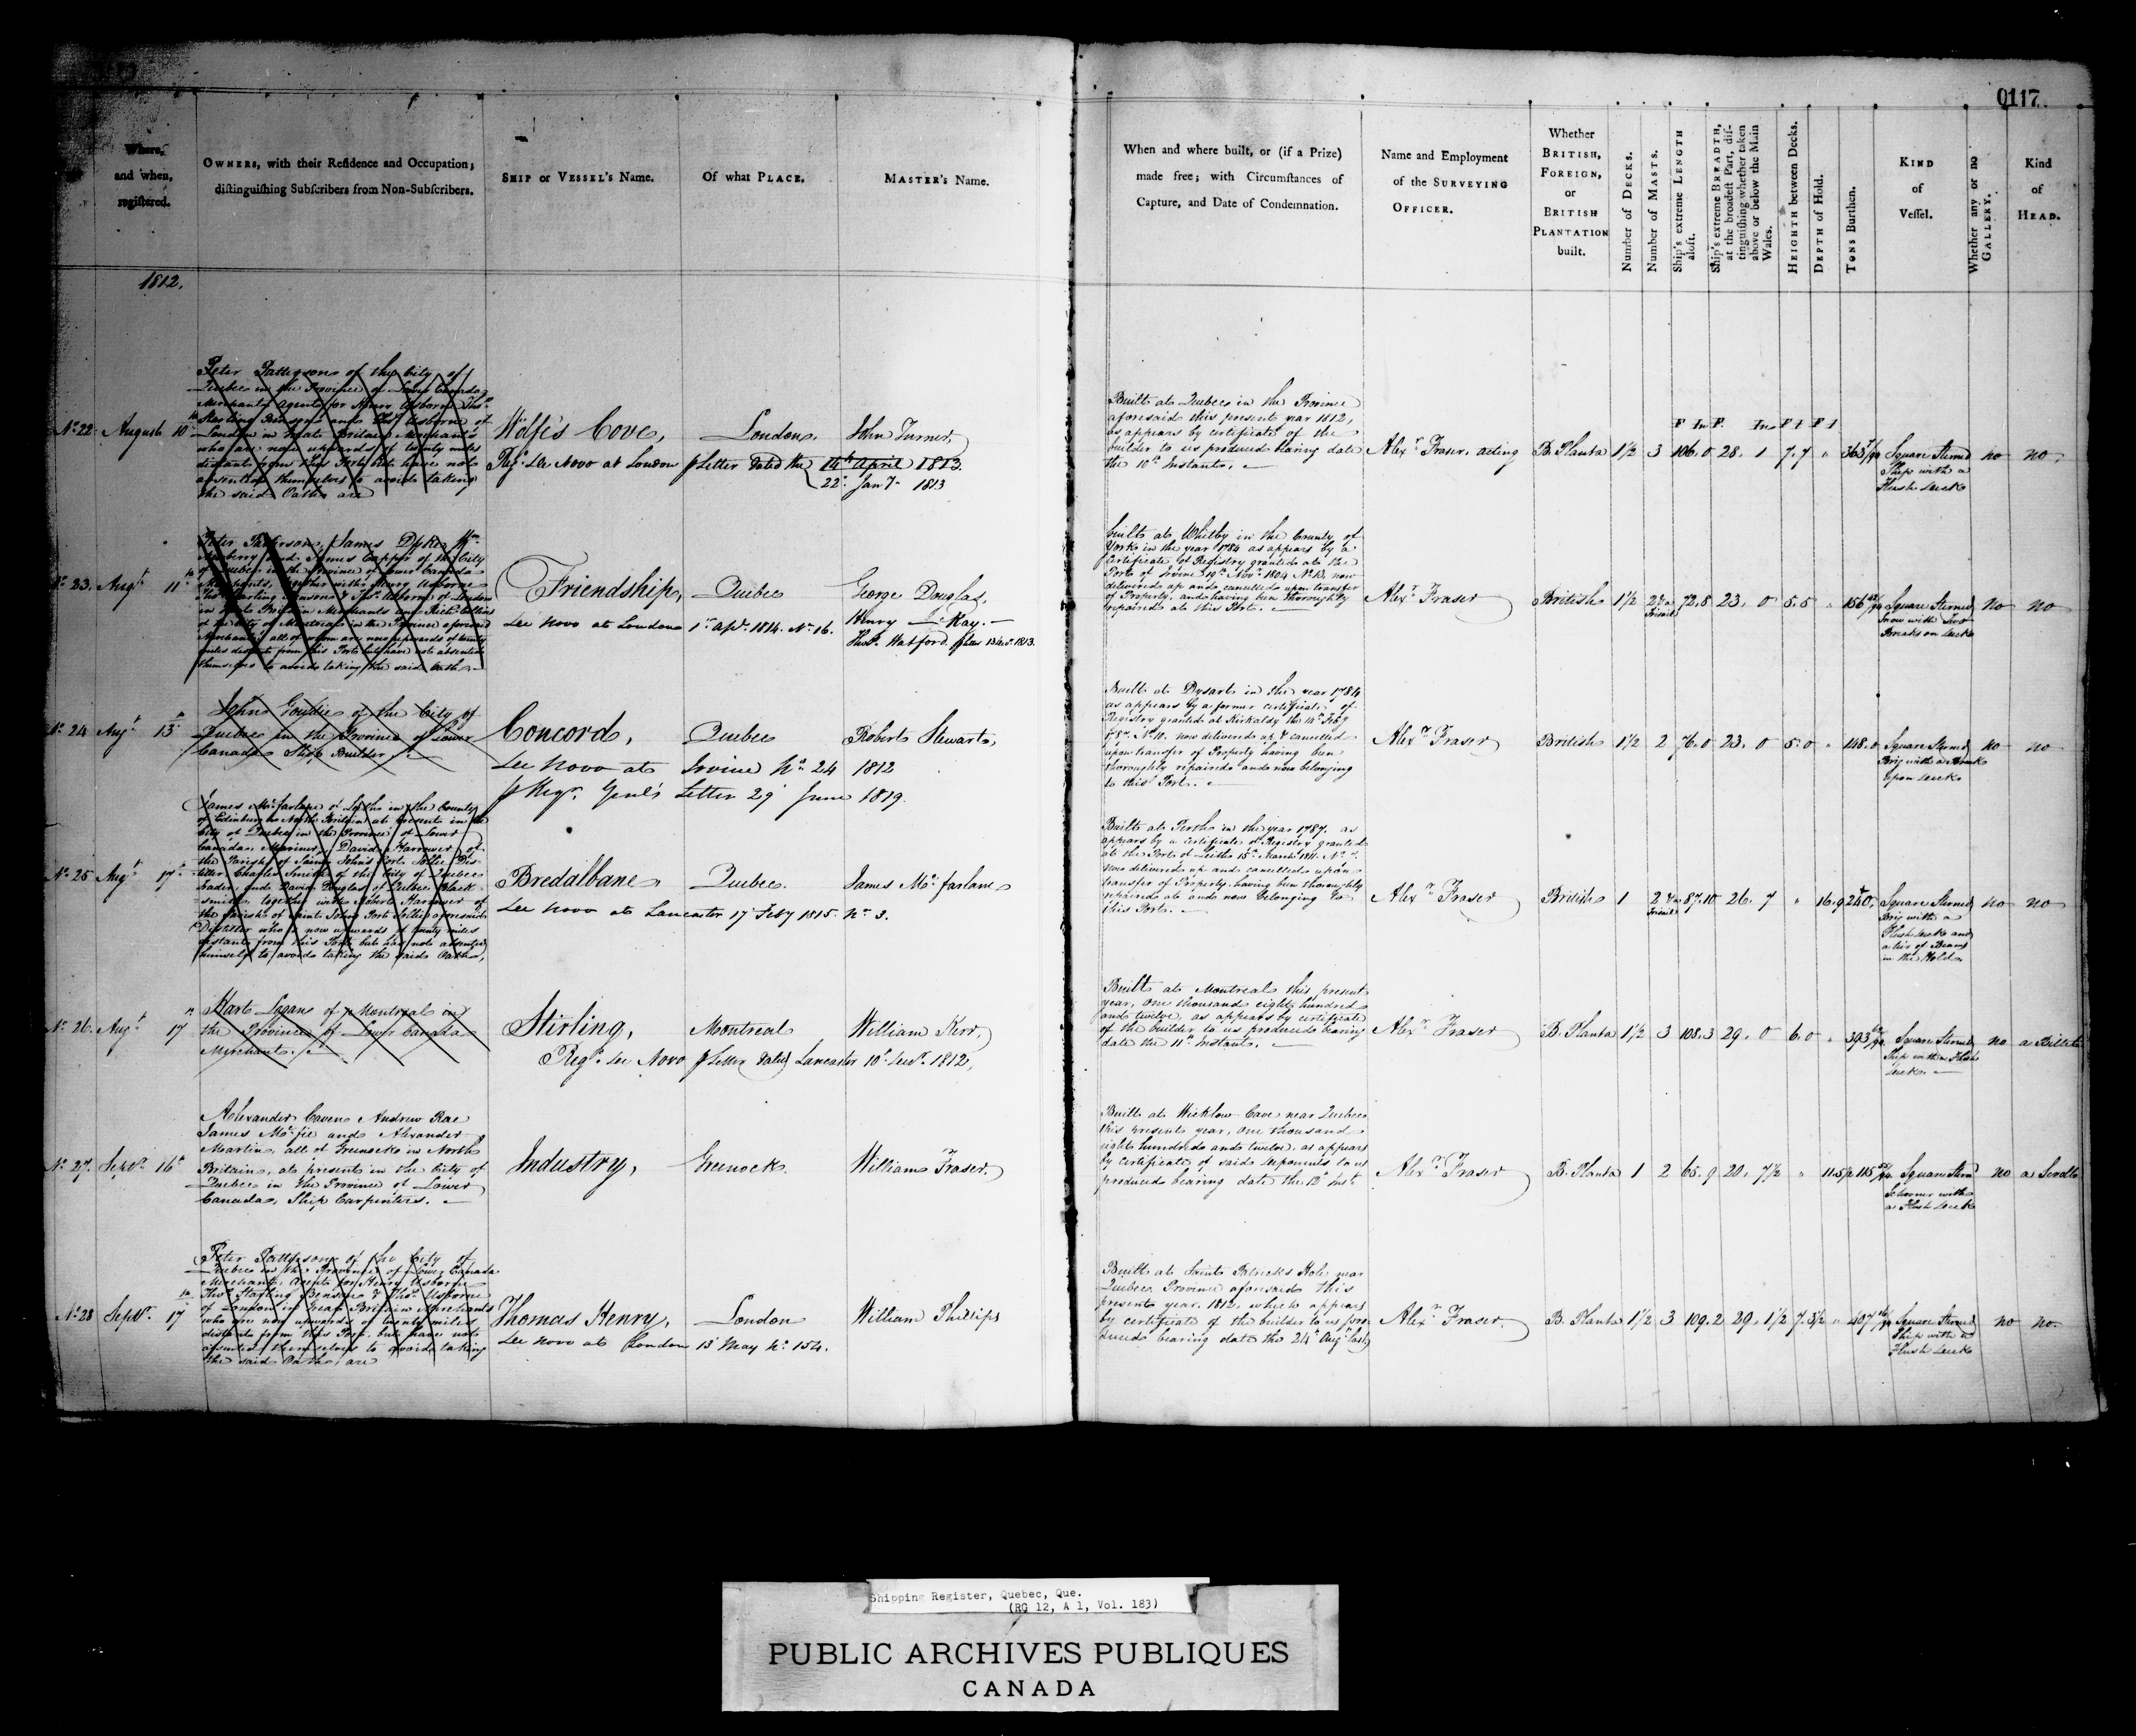 0117
Where,
and when,
registered.
OWNERS, with their Residence and Occupation;
distinguishing Subscribers from Non-Subscribers.
SHIP or VESSEL's Name.
Of what PLACE.
MASTER's Name.
When and where built, or (if a Prize)
made free; with Circumstances of
Capture, and Date of Condemnation.
Name and Employment
of the SURVEYING
OFFICER.
Whether
BRITISH,
FOREIGN,
or
BRITISH
PLANTATION
built.
Number of DECKS.
Number of MASTS.
Ship's extreme LENGTH
aloft.
Ship's extreme BREADTH,
at the broadest Part, dis-
tinguishing whether taken
above or below the Main
Wales.
HEIGHTH between Decks.
DEPTH of Hold.
TONS Burthen.
KIND
of
Vessel.
Whether any or no
GALLERY.
Kind
of
HEAD.
1812.
No. 22 August 10th
Peter Patterson of the City of
Quebec in the Province of Lower Canada
Merchant Agent for Henry Usborne Thos.
Starling Benson and Thos. Usborne of
London in Great Britain Merchants
who are now upwards of twenty miles
distant from this Port but have not
absented themselves to avoid taking
the said Oaths are
Wolfe's Cove,
London,
John Turner,
Regd. de Novo at London p Letter dated the 14th April 1813.
22d. Jany. 1813
Built at Quebec in the Province
aforesaid this present year 1812,
as appears by certificate of the
builder to us produced bearing date
the 10th Instant.
Alexr. Fraser, acting
B. Planta
1½ 3 106. 0 28. 1 7. 7 " 363
Square Sterned
Ship with a
Flush deck
no
no.
No. 23. Augt. 11th
Peter Patterson, James Dyke, Wm.
and James Capper of the City
of Quebec in the Province of Lower Canada
Merchants, together with Henry Usborne
Thos. Starling Benson & Thos. Usborne of London
in Great Britain Merchants and
of the City of Montreal in the Province aforesaid
Merchant all of whom are now upwards of twenty
miles distant from this Port but have not absented
themselves to avoid taking the said Oath
Friendship,
Quebec
George Douglas,
De Novo at London 1st. Apl. 1814. No. 16.
Henry Kay.
Built at Whitby in the County of
York in the year 1784 as appears by a
Certificate of Registry granted at the
Port of Irvine 19th Novr. 1804 No. 13, now
delivered up and cancelled upon transfer
of Property, and having been thoroughly
repaired at this Port.
Alexr. Fraser
British
1½ 2 72. 8 23. 0 5. 5 " 156
Square Sterned
Snow with two
Breaks on deck
no
no
No. 24 Augt. 13th
John Goudie of the City of
Quebec in the Province of Lower
Canada Ship Builder
Concord,
Quebec
Robert Stewart,
De Novo at Irvine No. 24 1812
p Regr. Genl's Letter 29 June 1819.
Built at Dysart in the year 1784
as appears by a former certificate of
Registry granted at Kirkaldy the 14th Feby
No. 11. now delivered up & cancelled
upon transfer of Property having been
thoroughly repaired and now belonging
to this Port.
Alexr. Fraser
British
1½ 2 76. 0 23. 0 5. 0 " 148. 0
Square Sterned
Brig with a Break
upon deck
no
no
No. 25 Augt. 17th
James McFarlane of Leith in the County
of Edinburg in North Britain at present in the
City of Quebec in the Province of Lower
Canada, Mariner, David Harrower of
the Parish of Saint John's Port Jollie Dis-
tiller Charles Smith of the City of Quebec
trader, and David Douglas of Quebec Black-
smith, together with Robert Harrower of
the Parish of Saint Johns Port Jollie aforesaid
Distiller who is now upwards of twenty miles
distant from this Port but has not absented
himself to avoid taking the said Oaths,
Bredalbane
Quebec.
James McFarlane
De Novo at Lancaster 17 Feby 1815. No. 3.
Built at Perth in the year 1787. as
appears by a certificate of Registry granted
at the Port of Leith 15th March 1811. No.
now delivered up and cancelled upon
transfer of Property, having been thoroughly
repaired at and now belonging to
this Port.
Alexr. Fraser
British
1 2 87. 10 26. 7 " 16. 9 240.
Square Sterned
Brig with a
Flush deck and
a tier of Beams
in the Hold
no
no
No. 26. Augt. 17th
Hart Logan of Montreal in
the Province of Lower Canada
Merchant.
Stirling,
Montreal
William Kerr,
Regd. de Novo p Letter dated Lancaster 10th Decr. 1812,
Built at Montreal this present
year, one thousand eight hundred
and twelve, as appears by certificate
of the builder to us produced bearing
date the 11th Instant.
Alexr. Fraser
B. Planta
1½ 3 108. 3 29. 0 6. 0 " 393
Square Sterned
Ship with a Flush
deck.
no
a Billet
No. 27. Septr. 16th
Alexander Caven Andrew Rae
James McFie and Alexander
Martin, all of Greenock in North
Britain, at present in the City of
Quebec in the Province of Lower
Canada, Ship Carpenters.
Industry,
Greenock
William Fraser.
Built at Wicklow Cove near Quebec
this present year, one thousand
eight hundred and twelve, as appears
by certificate of said deponents to us
produced bearing date the 12th Inst.
Alexr. Fraser
B. Planta
1 2 65. 9 20. 7½ " 115
Square Sternd
Schooner with
a Flush deck
no
a Scroll
No. 28 Septr. 17th
Peter Patterson of the City of
Quebec in the Province of Lower Canada
Merchant, Agent for Henry Usborne
Thos. Starling Benson & Thos. Usborne
of London in Great Britain Merchants
who are now upwards of twenty miles
distant from this Port, but have not
absented themselves to avoid taking
the said Oaths, are
Thomas Henry,
London
William Phillips
De Novo at London 13 May No. 154.
Built at Saint Patricks Hole near
Quebec Province aforesaid this
present year, 1812, which appears
by certificate of the builder to us pro-
duced bearing date the 24th Augt. last,
Alexr. Fraser.
B. Planta
1½ 3 109. 2 29. 1½ 7. 3½ " 407
Square Sterned
Ship with a
Flush deck
no
no.
Shipping Register, Quebec, Que.
(RG 12, A 1, Vol. 183)
PUBLIC ARCHIVES PUBLIQUES
CANADA